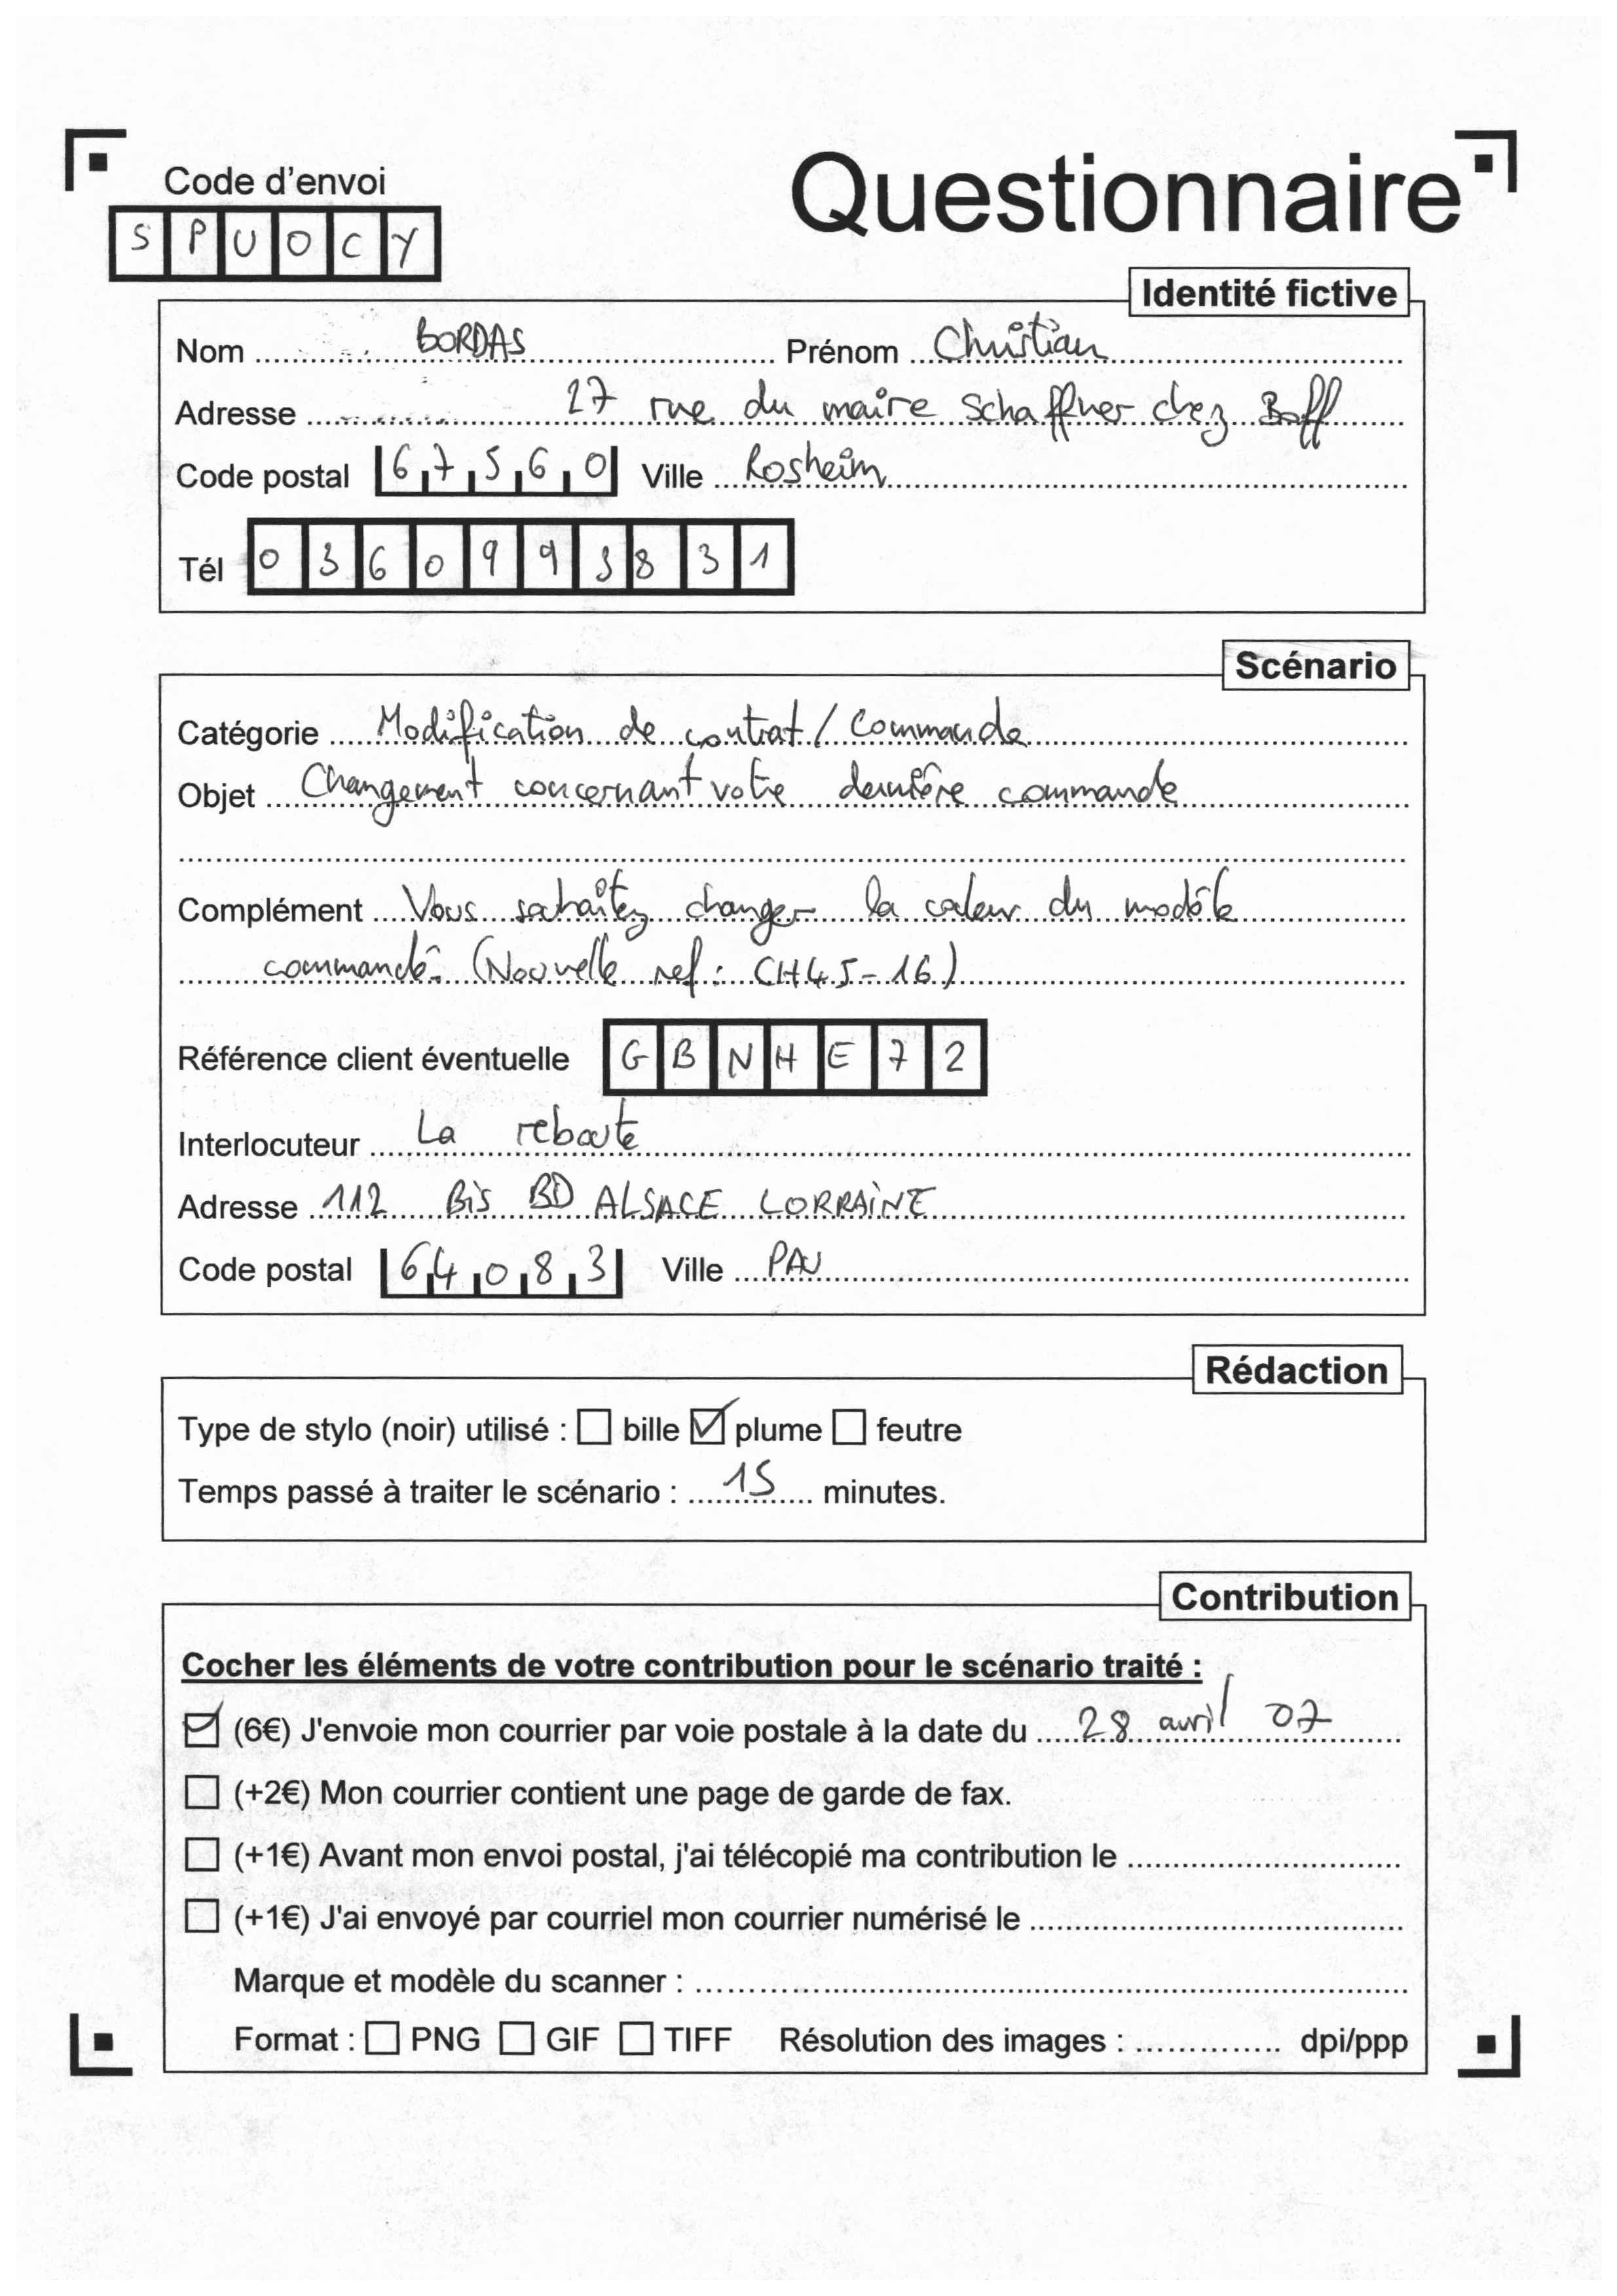 Code d'envoi
Questionnaire
S P U O C Y
Identité fictive
Nom BORDAS Prénom Christian
Adresse 27 rue du maire Schaffner chez Boff
Code postal 67560 Ville Rosheim
Tél 0360993831
Scénario
Catégorie Modification de contrat / Commande
Objet Changement concernant votre dernière commande
Complément Vous souhaitez changer la couleur du modèle
commandé. (Nouvelle ref : CH45-16)
Référence client éventuelle G B N H E 7 2
Interlocuteur La reboute
Adresse 112 Bis BD ALSACE LORRAINE
Code postal 64083 Ville PAU
Rédaction
Type de stylo (noir) utilisé : ☐ bille ☑ plume ☐ feutre
Temps passé à traiter le scénario : 15 minutes.
Contribution
Cocher les éléments de votre contribution pour le scénario traité :
☑ (6€) J'envoie mon courrier par voie postale à la date du 28 avril 07
☐ (+2€) Mon courrier contient une page de garde de fax.
☐ (+1€) Avant mon envoi postal, j'ai télécopié ma contribution le
☐ (+1€) J'ai envoyé par courriel mon courrier numérisé le
Marque et modèle du scanner :
Format : ☐ PNG ☐ GIF ☐ TIFF Résolution des images : dpi/ppp